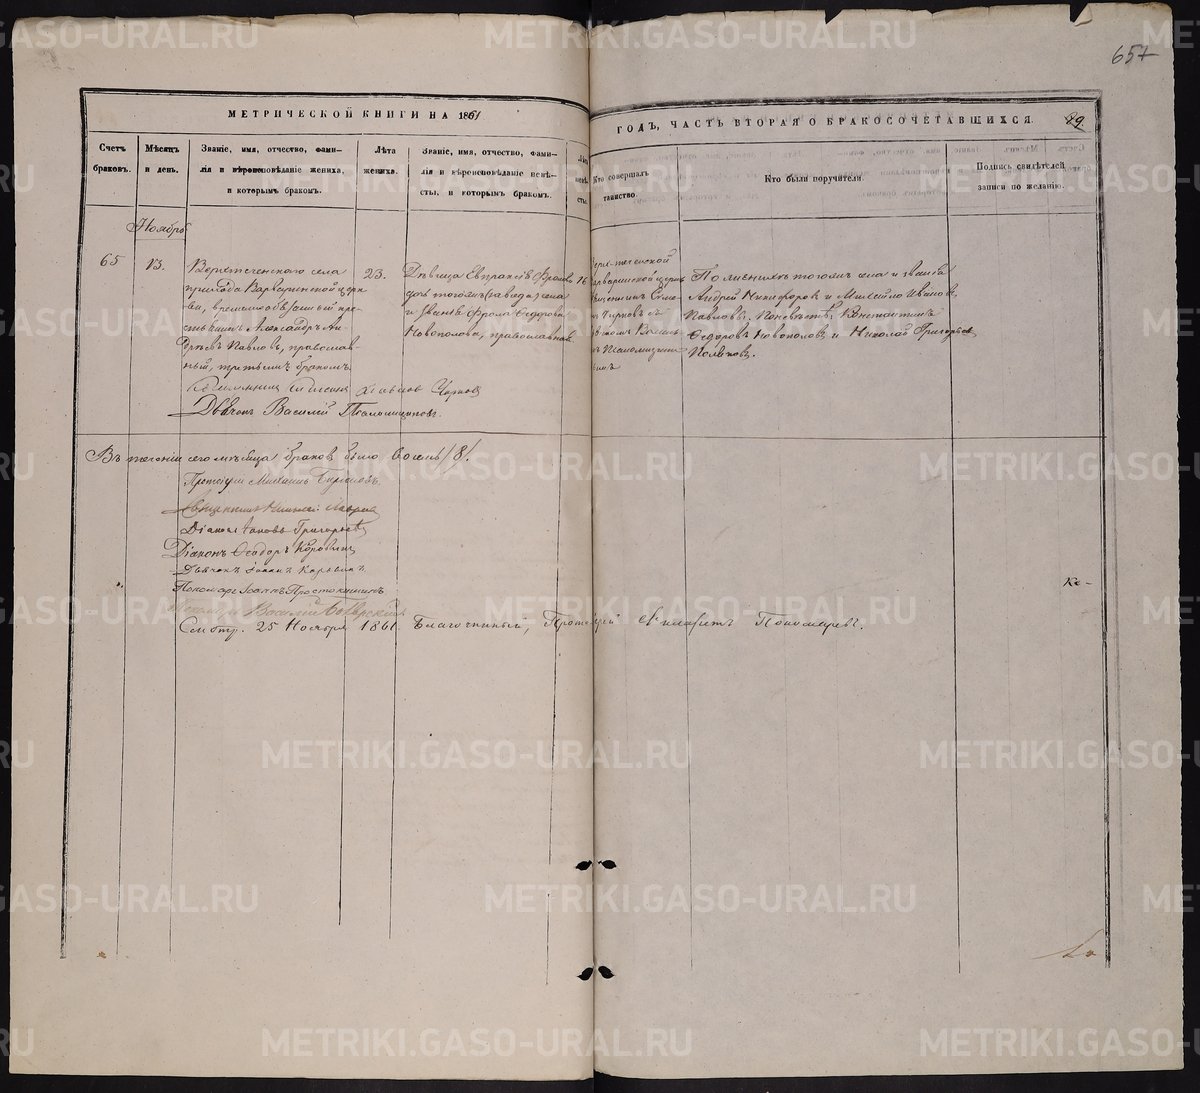 657
МЕТРИЧЕСКОЙ КНИГИ НА 1861
ГОДЪ, ЧАСТЬ ВТОРАЯ О БРАКОСОЧЕТАВШИХСЯ.
89
Счетъ браковъ.
Мѣсяцъ и день.
Званіе, имя, отчество, фами-
лія и вѣроисповѣданіе жениха,
и которымъ бракомъ.
Лѣта жениха.
Званіе, имя, отчество, фами-
лія и вѣроисповѣданіе невѣ-
сты, и которымъ бракомъ.
Кто совершалъ таинство
Кто были поручители
Подпись свидѣтелей
записи по желанію.
Ноябрь
65
13.
Верхтеченскаго села
прихода Варваринской церк
ви, временнообязанный кре-
стьянинъ Александръ Ан-
дреевъ Павловъ, православ-
ный, третьимъ бракомъ.
23.
Дѣвица Евпраксія Фролова
дочь тогожъ села
и званія Фрола Ѳедорова
Новополова, православная
16
Верх-теченской
Варваринской церкви
Священникъ
Чирковъ съ
По женихѣ тогожъ села и званія
Андрей Никифоровъ и Михайло Ивановъ
Павловы. По невѣстѣ, Константинъ
Ѳедоровъ Новополовъ и Николай Григорьевъ
Поляковъ.
Дьячекъ Василій Псаломщиковъ.
Въ теченіи сего мѣсяца браковъ было восемь /8/.
Протоіерей Михаилъ
Священникъ
Діаконъ Іаковъ Григорьевъ
Діаконъ Ѳеодоръ Коровинъ
Дьячекъ Іоаннъ
Пономарь Іоаннъ Простокишинъ
Пономарь Василій
Смотр. 25 Ноября 1861 Благочинный, Протоіерей Пономаревъ.
METRIKI.GASO-URAL.RU